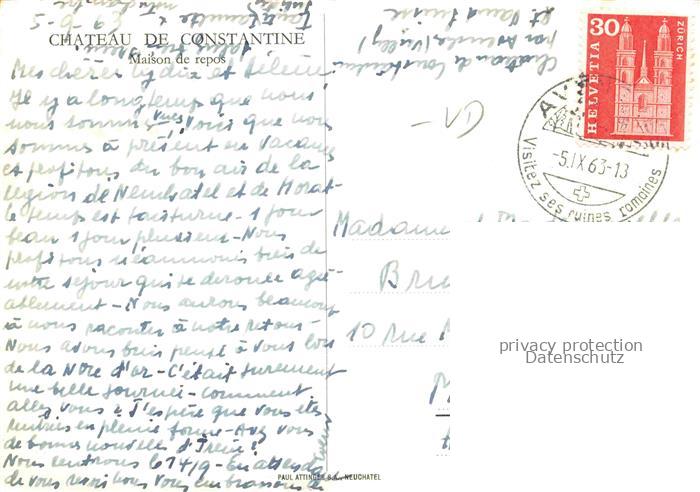 5-9-63
CHATEAU DE CONSTANTINE
Maison de repos
Mes chères Lydia et Hélène
Il y a longtemps que nous
nous sommes vues, voici que nous
sommes à présent en vacances
et profitons du bon air de la
région de Neuchatel et de Morat-
le temps est taciturne - 1 jour
beau 1 jour pluvieux - Nous
profitons néanmoins bien de
notre séjour qui se déroule agré-
ablement - Nous aurons beaucoup
à nous raconter à notre retour -
Nous avons bien pensé à vous lors
de la Nôce d'or - C'était surement
une belle journée - Comment
allez vous ? J'espère que vous êtes
rentrés en pleine forme - Avez vous
de bonnes nouvelles d'
Nous rentrons le 14/9 - En attendant
de vous revoir nous vous embrassons
Château de Constantine
par Avenches (Vully)
Ct. Vaud Suisse
30
HELVETIA
ZÜRICH
-5.IX 63-13
Visitez ses ruines romaines
Madame
10 rue
privacy protection
Datenschutz
PAUL ATTINGER S.A., NEUCHATEL